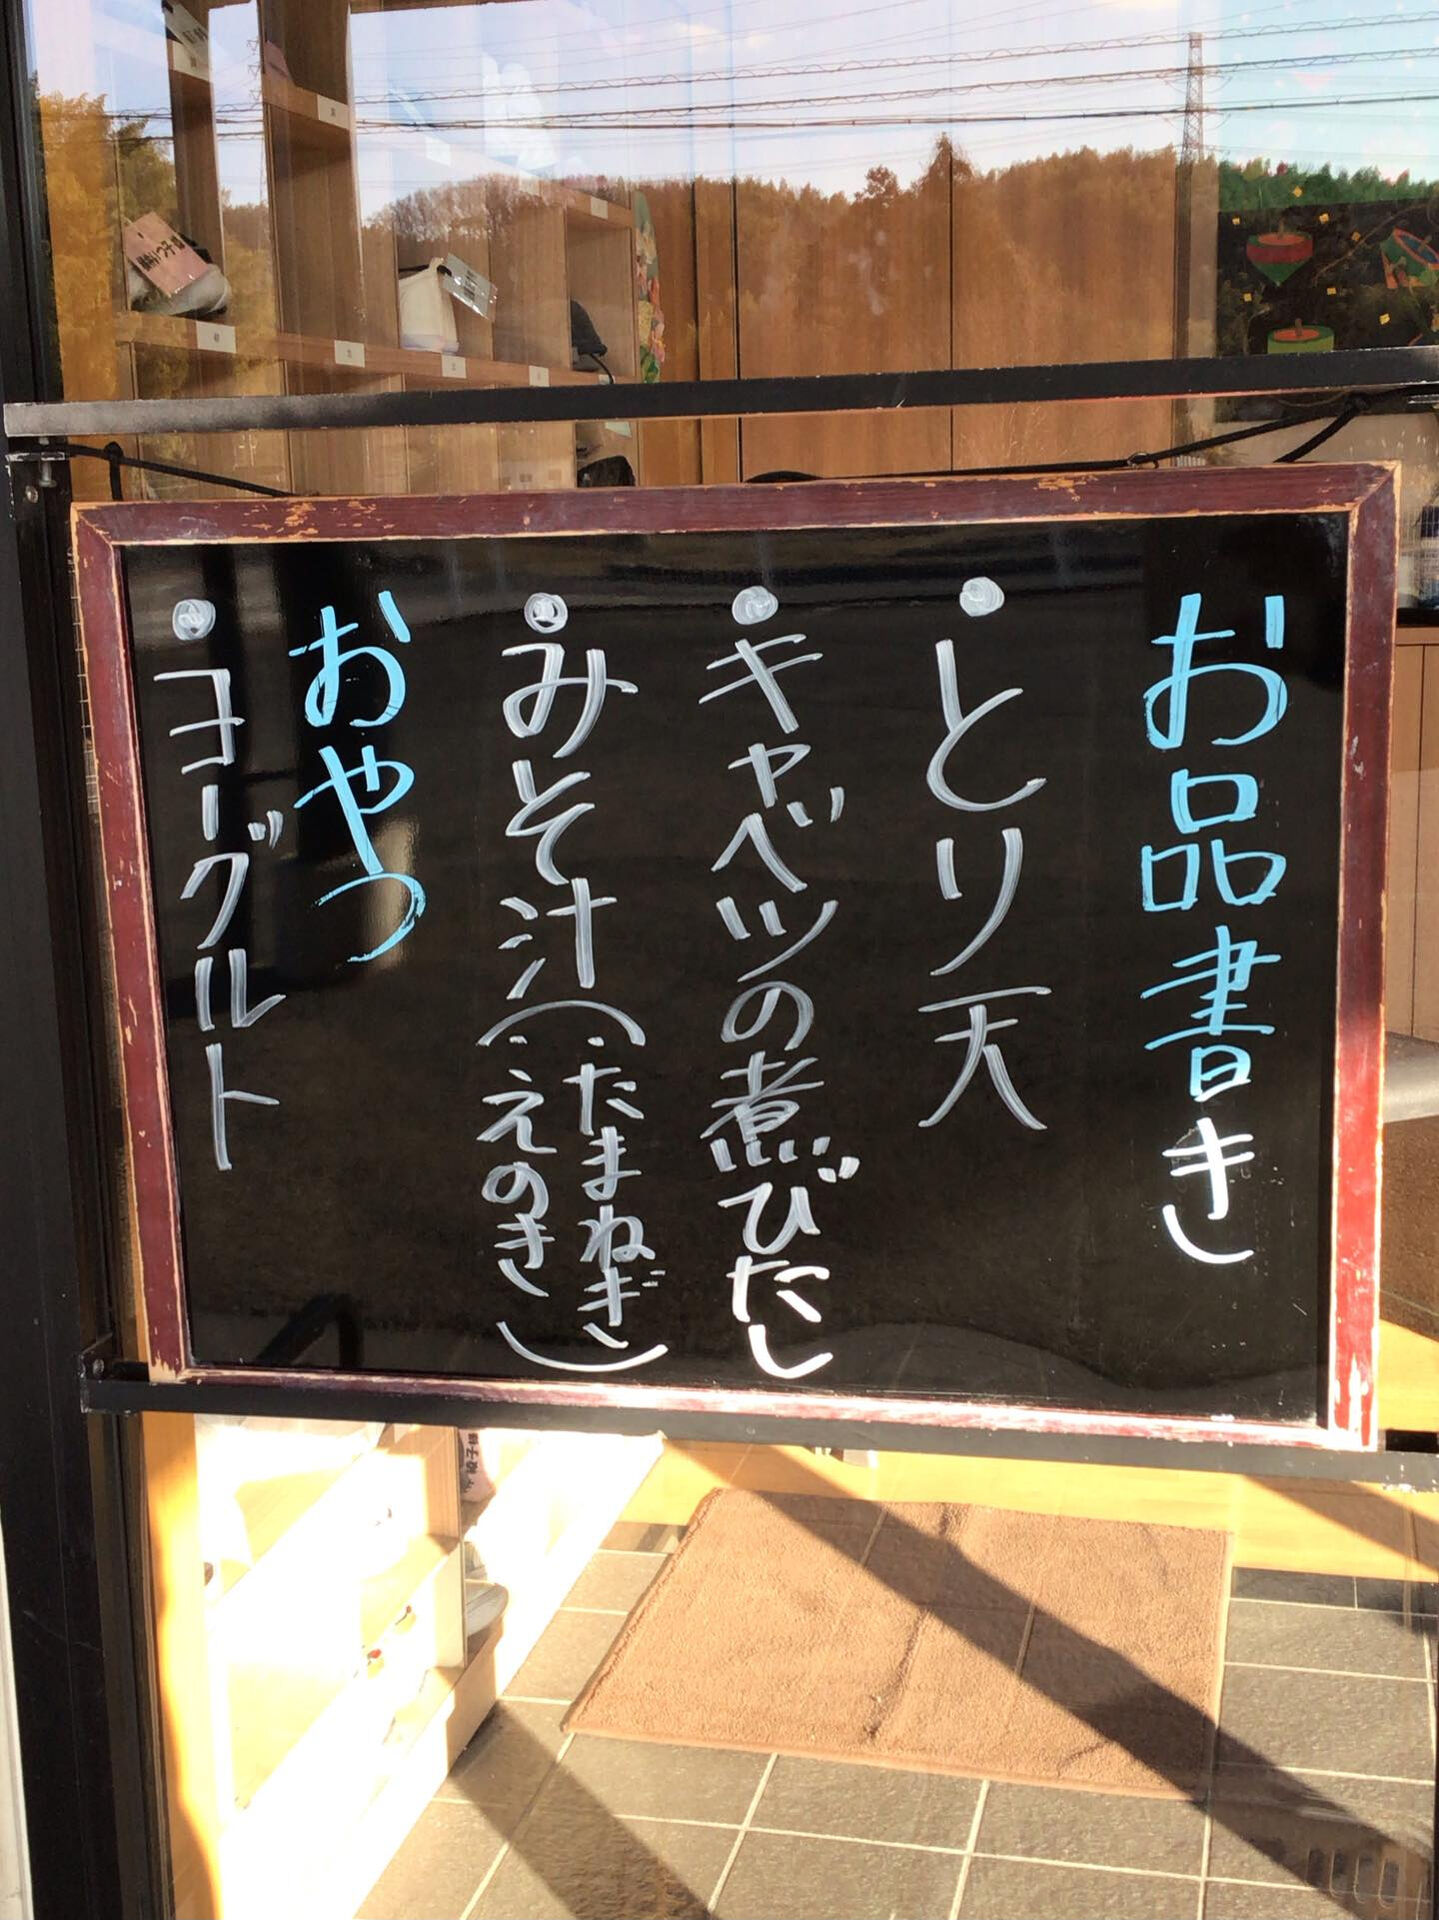 お品書き
・とり天
・キャベツの煮びたし
・みそ汁(・たまねぎ
・えのき)
おやつ
・ヨーグルト